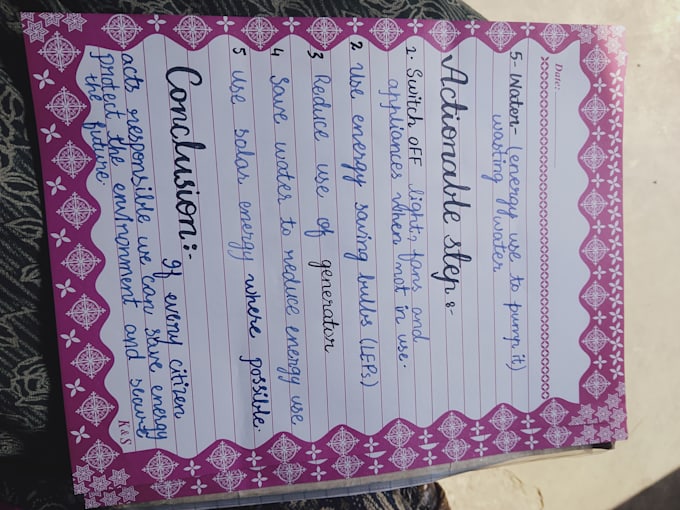 Date:
5. Water- (energy use to pump it)
wasting water
Actionable step:-
1. Switch off light, fans and
appliances when not in use.
2 Use energy saving bulbs (LEPs)
3 Reduce use of generator
4 Save water to reduce energy use
5 Use solar energy where possible.
Conclusion:-
If every citizen
acts responsible we can save energy
protect the environment and
the future.
K&S